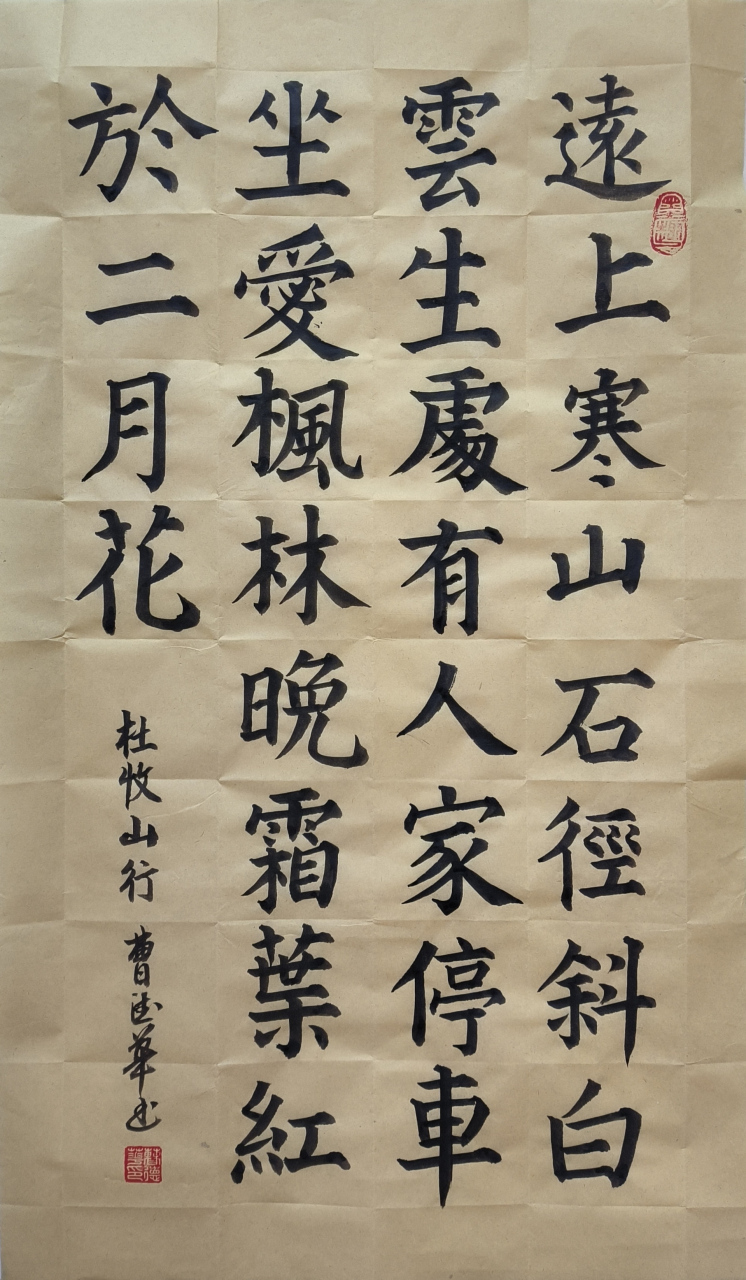 遠上寒山石徑斜白
雲生處有人家停車
坐愛楓林晚霜葉紅
於二月花
杜牧山行 曹德華书